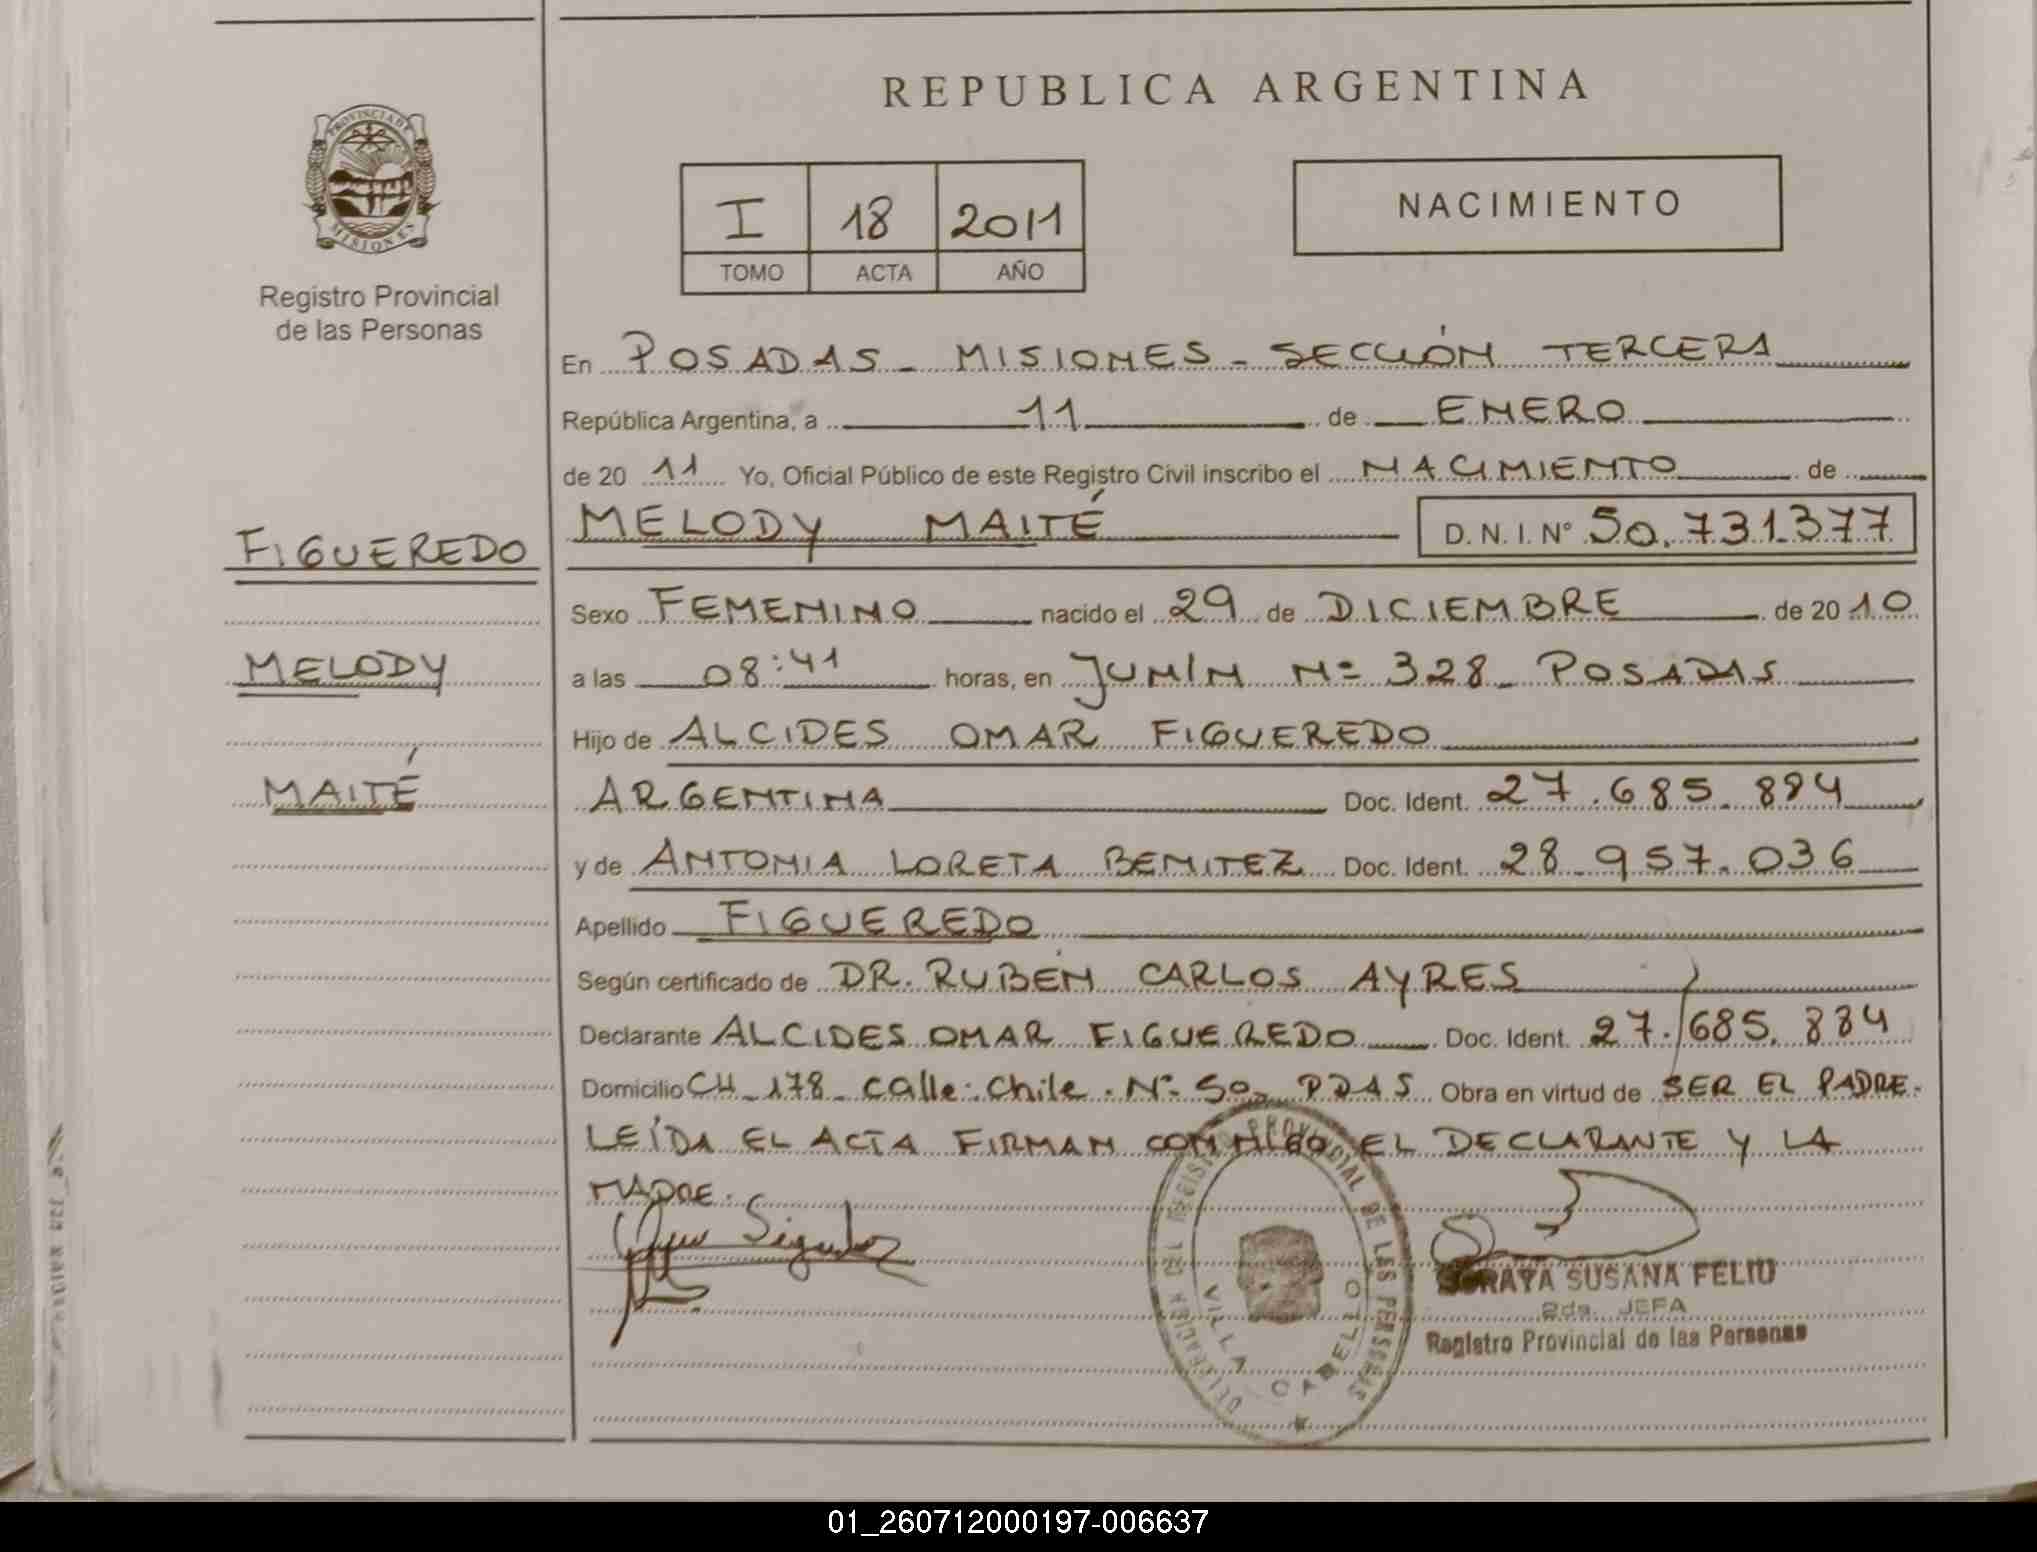 REPUBLICA ARGENTINA
PROVINCIA DE
MISIONES
Registro Provincial
de las Personas
I 18 2011
TOMO ACTA AÑO
NACIMIENTO
En POSADAS - MISIONES - SECCIÓN TERCERA
República Argentina, a 11 de ENERO
de 20 11 Yo, Oficial Público de este Registro Civil inscribo el NACIMIENTO de
MELODY MAITÉ D. N. I. Nº 50.731.377
FIGUEREDO
MELODY
MAITÉ
Sexo FEMENINO nacido el 29 de DICIEMBRE de 20 10
a las 08:41 horas, en JUNÍN Nº 328 - POSADAS
Hijo de ALCIDES OMAR FIGUEREDO
ARGENTINA Doc. Ident. 27.685.884
y de ANTONIA LORETA BENITEZ Doc. Ident. 28.957.036
Apellido FIGUEREDO
Según certificado de DR. RUBÉN CARLOS AYRES
Declarante ALCIDES OMAR FIGUEREDO Doc. Ident. 27.685.884
Domicilio CH - 178 - Calle: Chile. Nº 50 - PDAS Obra en virtud de SER EL PADRE.
LEÍDA EL ACTA FIRMAN CONMIGO EL DECLARANTE Y LA
MADRE.
REGISTRO PROVINCIAL DE LAS PERSONAS
VILLA CABELLO
SORAYA SUSANA FELIU
2da. JEFA
Registro Provincial de las Personas
01_260712000197-006637